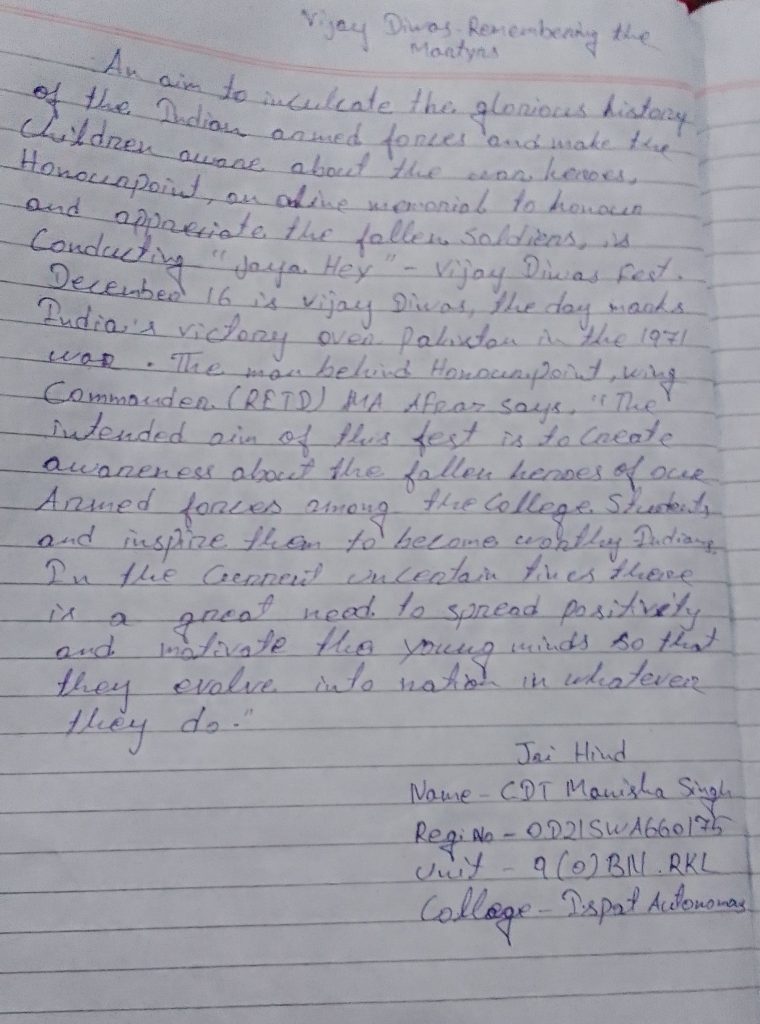 Vijay Diwas-Remembering the
Martyrs
An aim to inculcate the glorious history
of the Indian armed forces and make the
children aware about the war heroes,
Honourpoint, an online memorial to honour
and appreciate the fallen soldiers, is
Conducting "Jaya Hey" - Vijay Diwas Fest.
December 16 is vijay Diwas, the day marks
India's victory over Pakistan in the 1971
war. The man behind Honourpoint, wing
Commander (RETD) MA Afraz says, "The
intended aim of this fest is to Create
awareness about the fallen heroes of our
Armed forces among the College Students
and inspire them to become worthy Indians.
In the Current uncertain times there
is a great need to spread positively
and motivate the young minds so that
they evolve into nation in whatever
they do."
Jai Hind
Name - CDT Manisha Singh
Regi No - OD21SWA660175
Unit - 9(O)BN.RKL
College - Ispat Autonomas